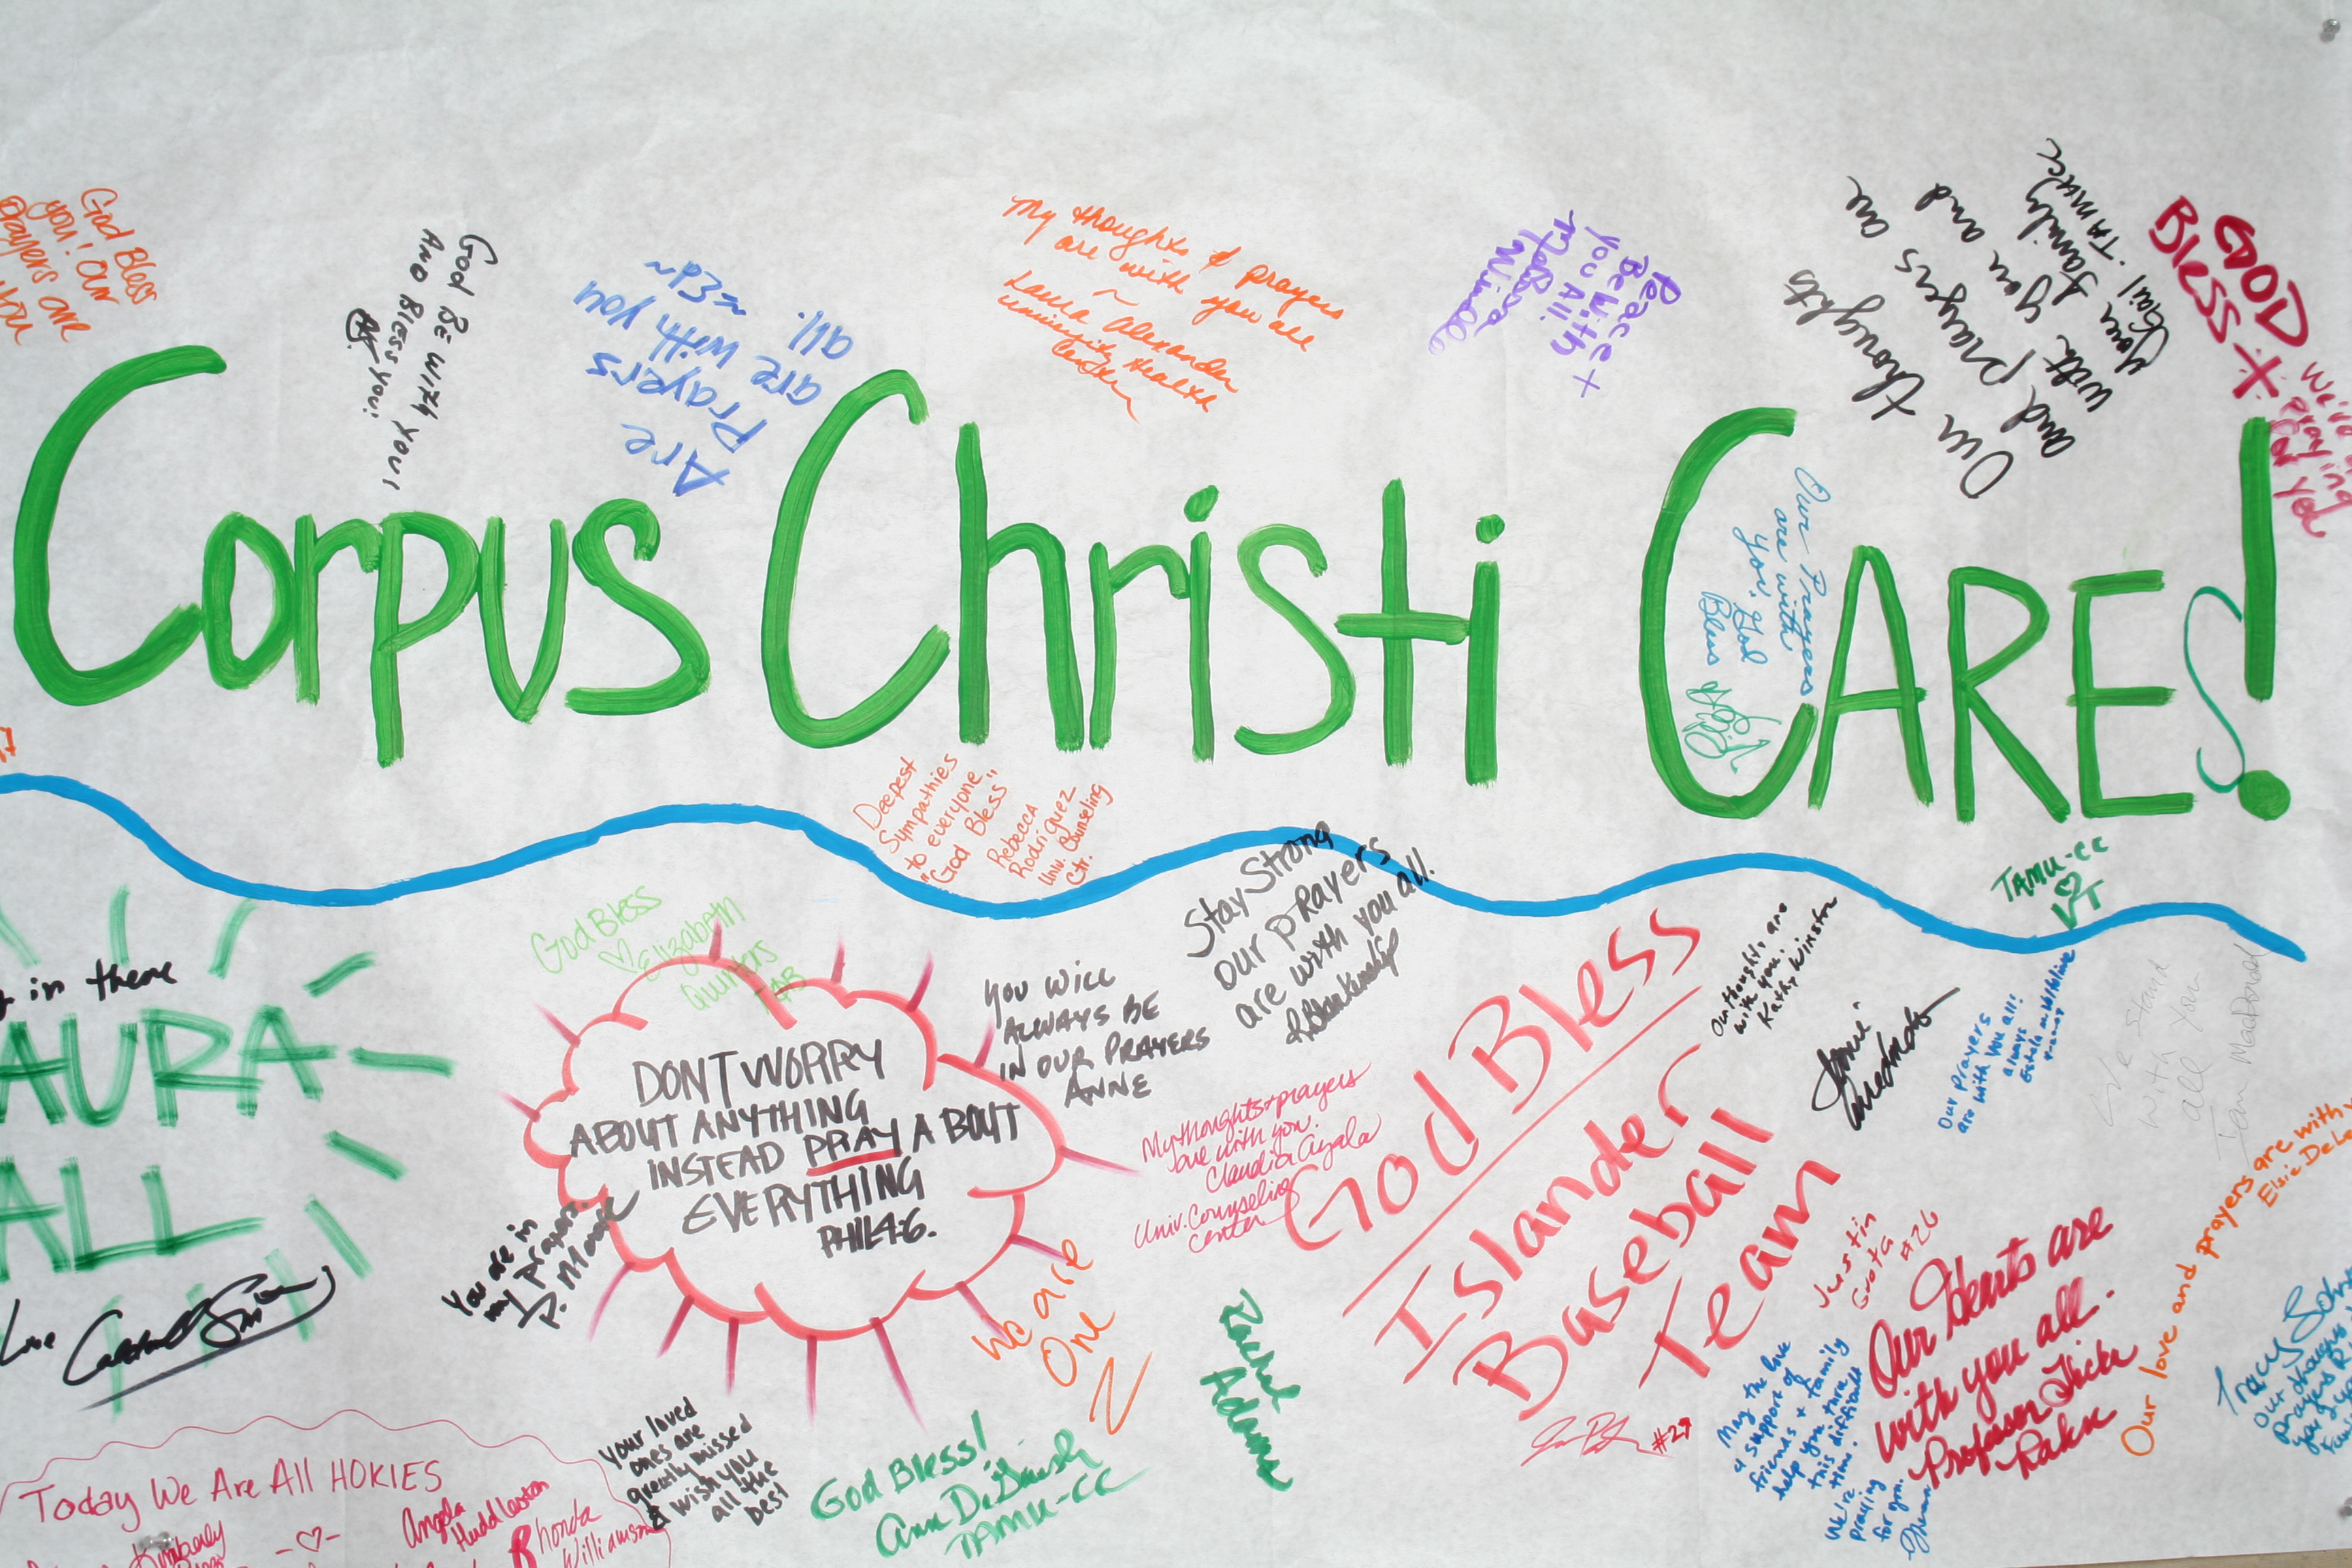 God Bless
you! Our
prayers are
you
God Be with you
AND Bless you!
Are
Prayers
are with you
all.
~Ed~
My thoughts & prayers
are with you all
~
Laura Alexander
University Health
Center
Peace +
Be With
You All!
Our thoughts are
and prayers are
with you and
your family
Gail · TAMUCC
GOD
Bless
praying
for you
Corpus Christi CAREs!
Our Prayers
are with
you. God
Bless
Deepest
Sympathies
to everyone
"God Bless"
Rebecca
Rodriguez
Univ. Counseling
Ctr.
Stay Strong
our prayers
are with you all.
TAMU-CC
♡
VT
God Bless
♡ Elizabeth
in there
AURA
ALL
Love
DON'T WORRY
ABOUT ANYTHING
INSTEAD PRAY ABOUT
EVERYTHING
PHIL 4:6.
YOU WILL
ALWAYS BE
IN OUR PRAYERS
ANNE
You are in
my prayers
P. Moore
My thoughts + prayers
are with you.
Claudia Ayala
Univ. Counseling
Center
God Bless
Islander
Baseball
Team
Justin
#26
#27
Our thoughts are
with you.
Kathy Winston
Our Prayers
are with you all!
always
We Stand
with
all you
Ian MacDonald
Our love and prayers are with
Elsie
We are
One
Rachel
Adame
Our Hearts are
with you all.
Professor
May the love
& support of
friends + family
help you thru
this difficult
time.
We're
praying
for you.
Tracy
our thoughts
prayers
Your loved
ones are
greatly missed
& wish you
all the
best
God Bless!
Ann
TAMU-CC
Today We Are All HOKIES
-♡-
Angela
Huddleston
Kimberly
Rhonda
Williamson